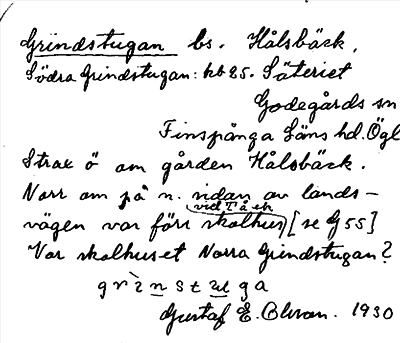 Grindstugan bs. Hålsbäck,
Södra Grindstugan: hb 25. Säteriet
Godegårds sn
Finspånga Läns hd. Ögl
Strax ö om gården Hålsbäck.
Norr om på n. sidan av lands-
vid Tå ek
vägen var förr skolhus [se G 55]
Var skolhuset Norra Grindstugan?
grìnstuga
Gustaf E. 1930